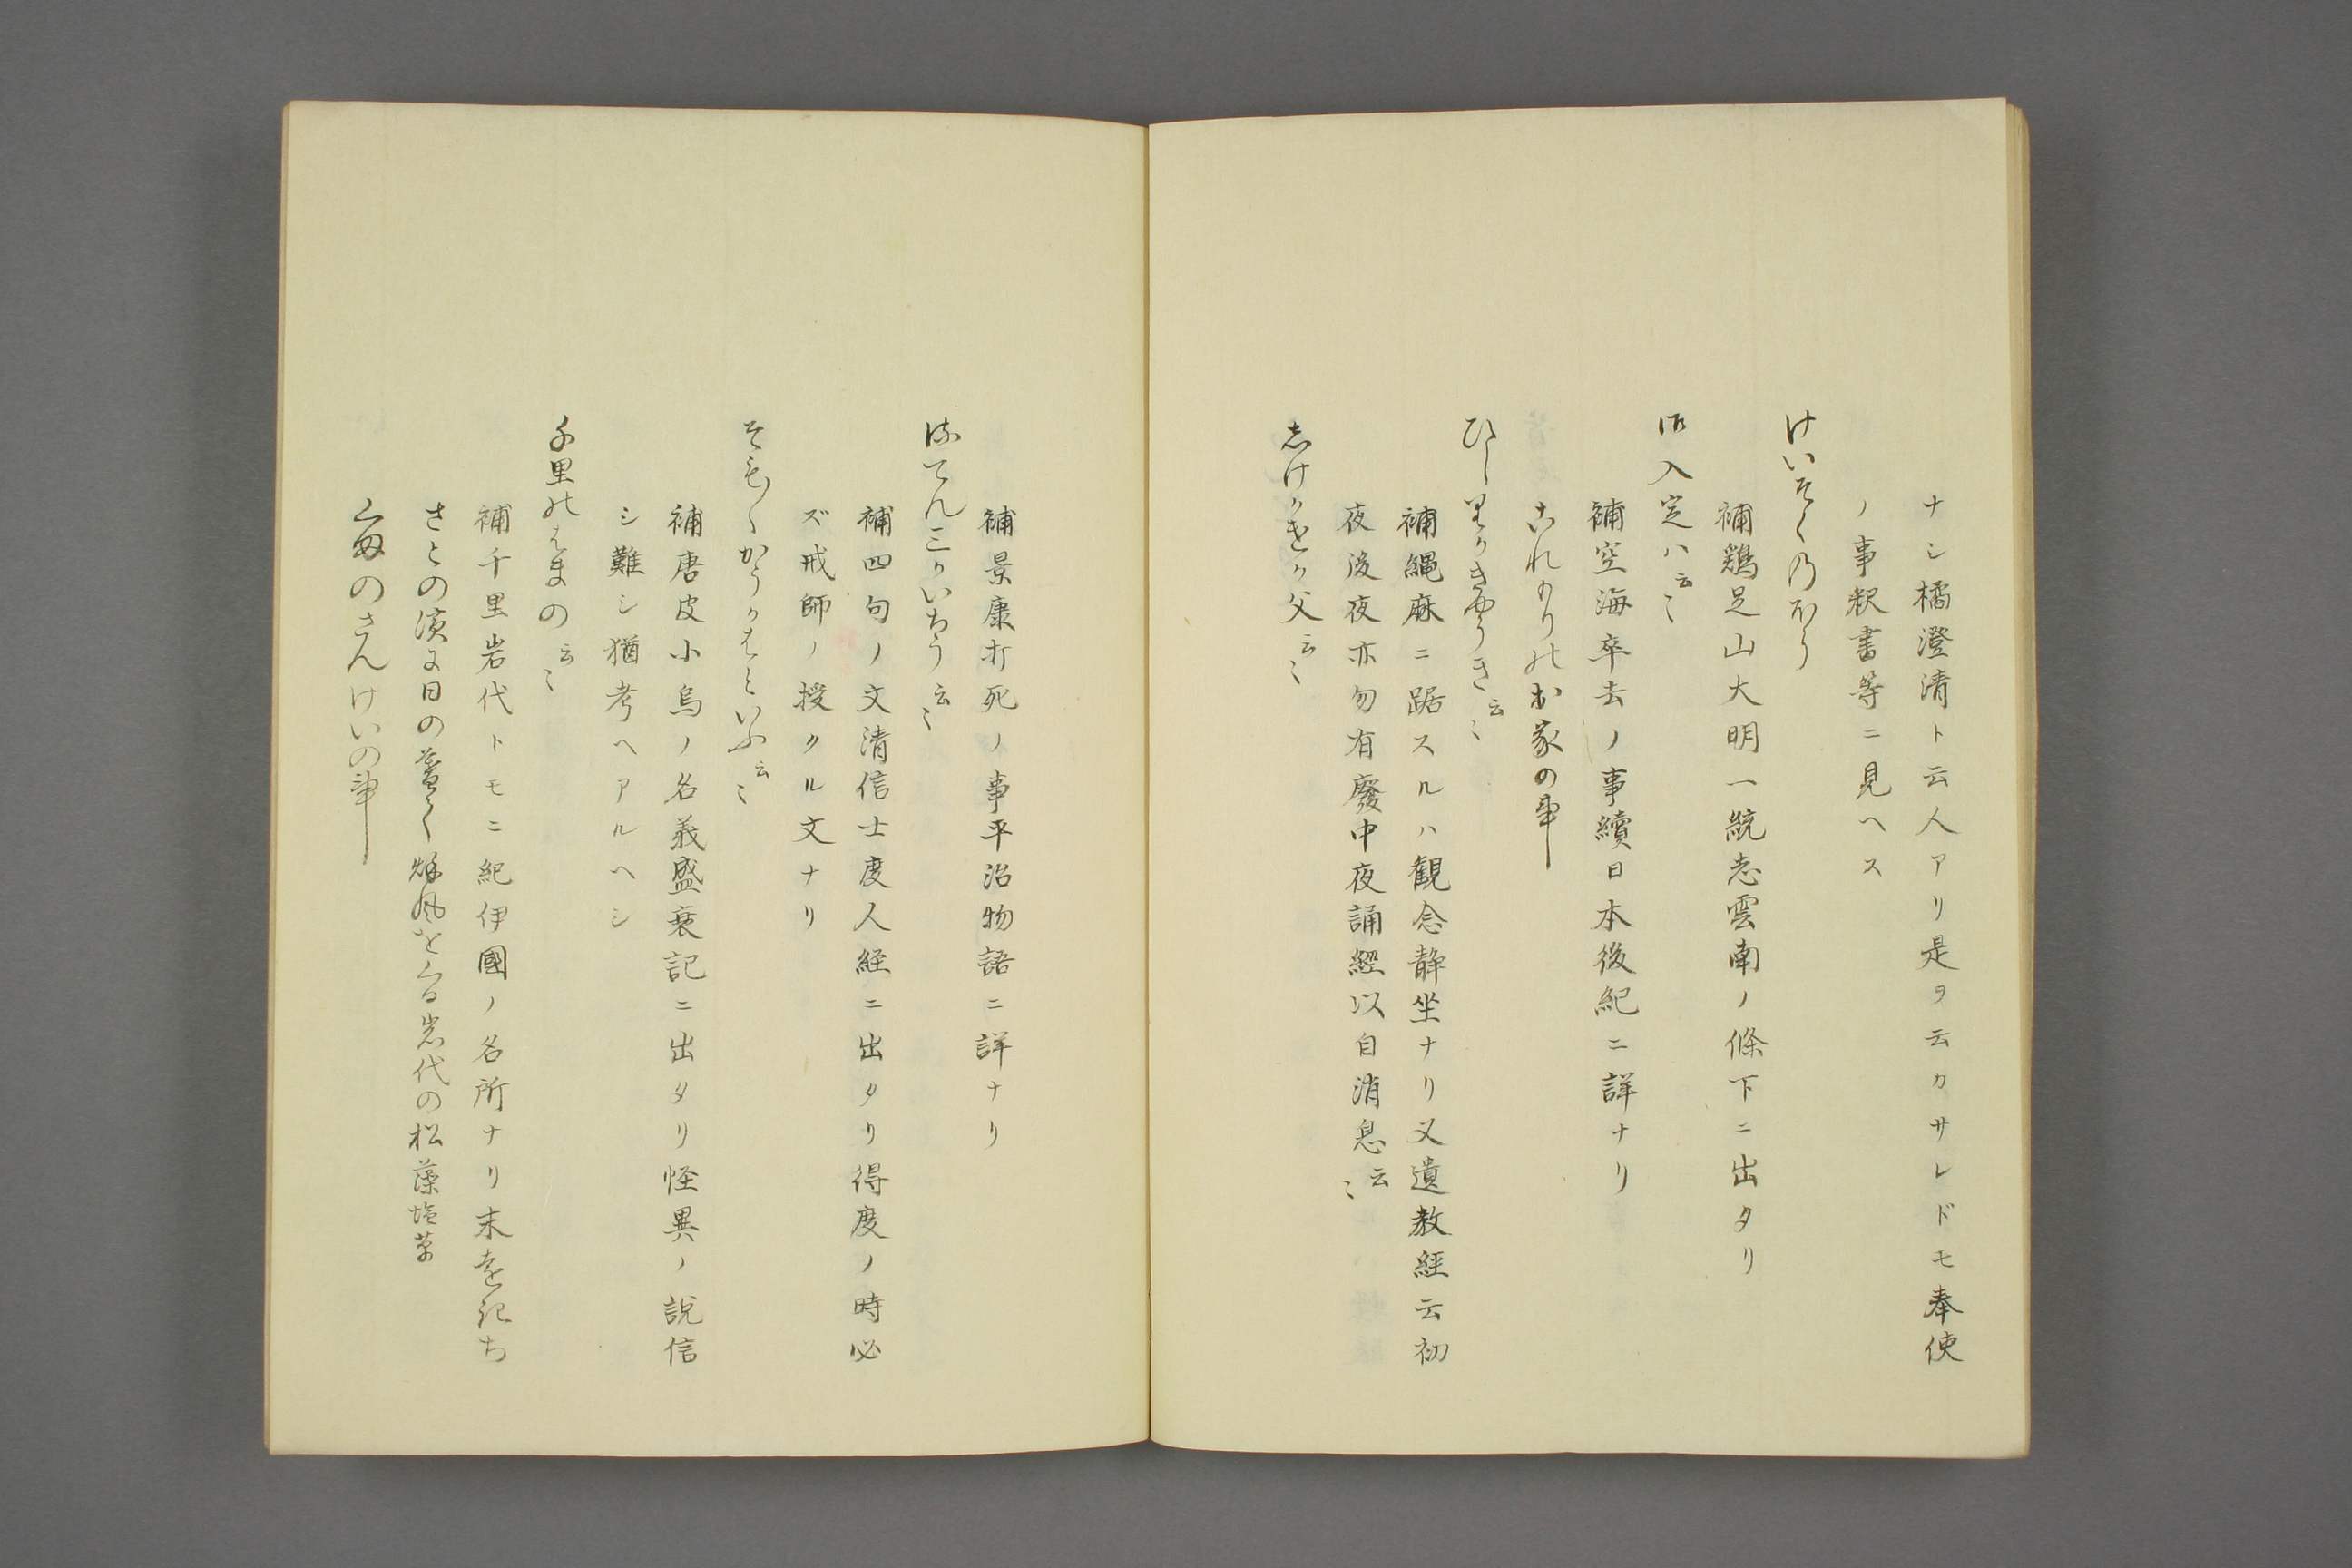 ナシ橘澄清ト云人アリ是ヲ云カサレドモ奉使
ノ事釈書等ニ見ヘス
けいそくのほう
補鶏足山大明一統志雲南ノ條下ニ出タリ
御入定ハ云〻
補空海卒去ノ事續日本後紀ニ詳ナリ
これもりの出家の事
補縄床ニ踞スルハ観念静坐ナリ又遺教經云初
夜後夜亦勿有廢中夜誦經以自消息云〻
しけかけか父云〻
補景康打死ノ事平治物語ニ詳ナリ
るてん三かいちう云〻
補四句ノ文清信士度人経ニ出タリ得度ノ時必
ズ戒師ノ授クル文ナリ
そも〳〵からかはといふ云〻
補唐皮小烏ノ名義盛衰記ニ出タリ怪異ノ説信
シ難シ猶考ヘアルヘシ
千里のはまの云〻
補千里岩代トモニ紀伊國ノ名所ナリ
岩代の松藻塩草
くまのさんけいの事